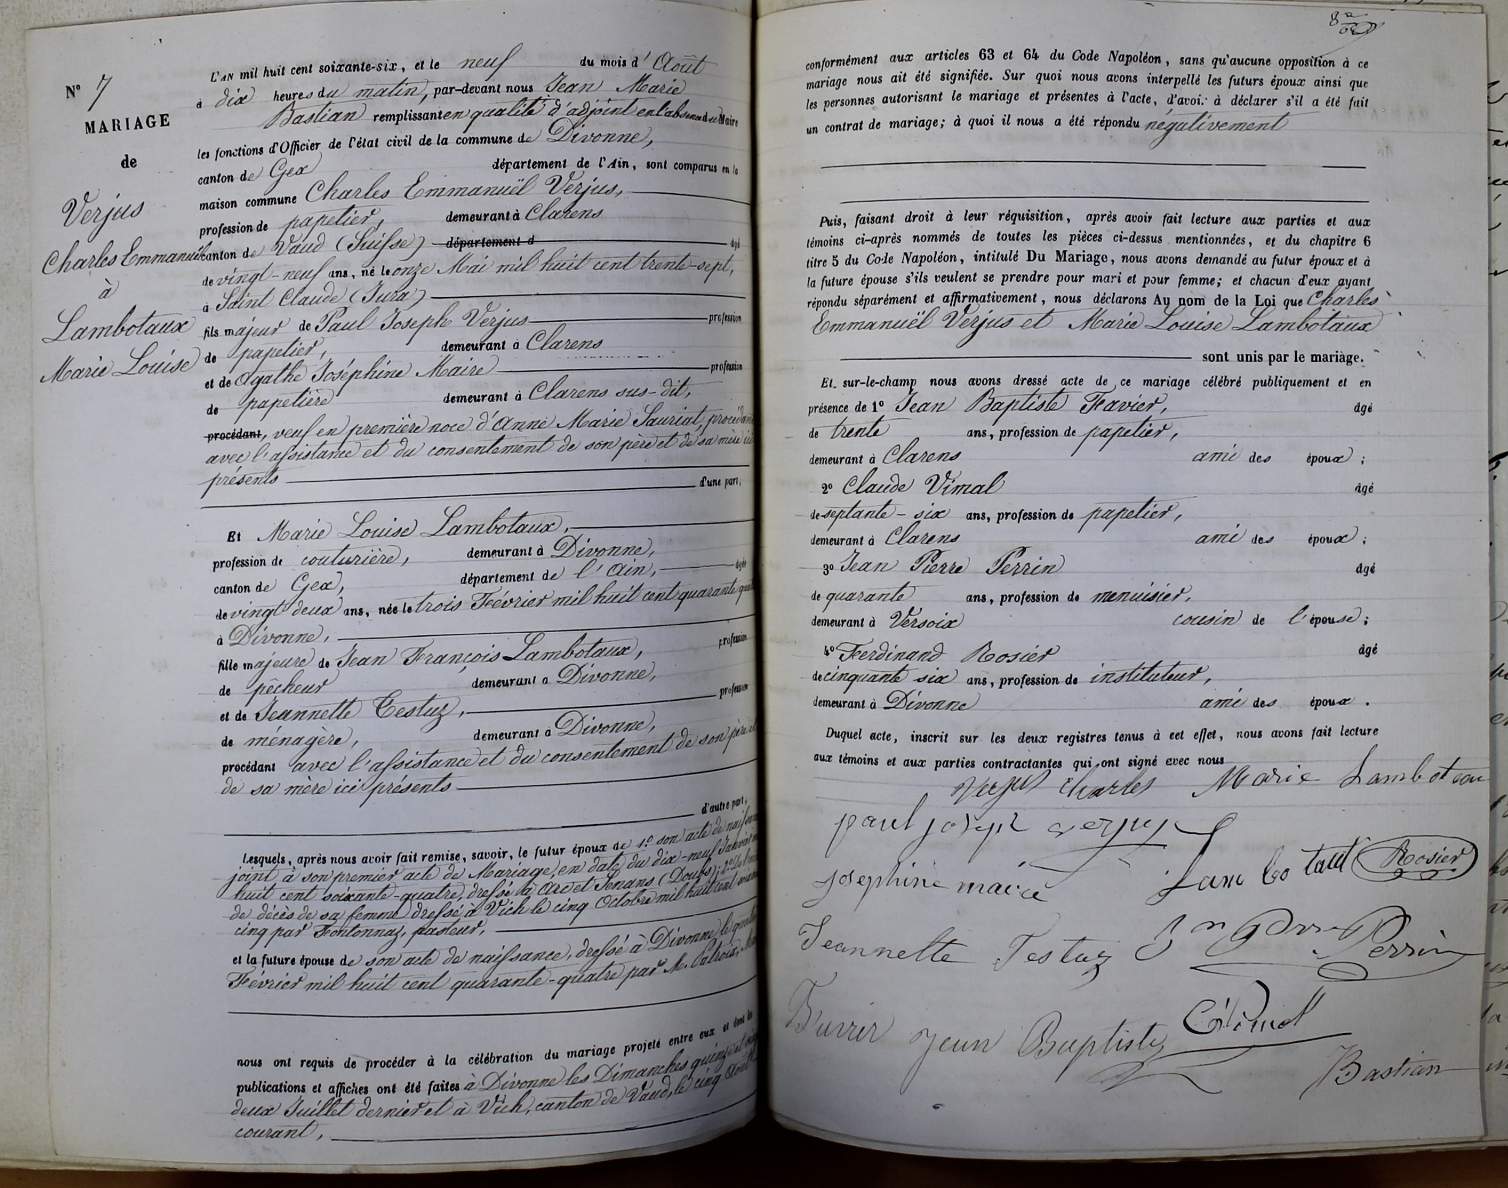 N° 7
MARIAGE
de
Verjus
Charles Emmanuel
à
Lambotaux
Marie Louise
L'AN mil huit cent soixante-six, et le neuf du mois d'Août
à dix heures du matin, par-devant nous Jean Marie
Bastian remplissant en qualité d'adjoint en l'absence du Maire
les fonctions d'Officier de l'état civil de la commune de Divonne,
canton de Gex département de l'Ain, sont comparus en la
maison commune Charles Emmanuël Verjus,
profession de papetier, demeurant à Clarens
canton de Vaud (Suisse) département d âgé
de vingt-neuf ans, né le onze Mai mil huit cent trente-sept,
à Saint Claude (Jura)
fils majeur de Paul Joseph Verjus profession
de papetier, demeurant à Clarens
et de Agathe Joséphine Maire profession
de papetière demeurant à Clarens sus-dit,
procédant, veuf en première noce d'Anne Marie Sauriat, procédant
avec l'assistance et du consentement de son père et de sa mère ici
présents d'une part,
Et Marie Louise Lambotaux,
profession de couturière, demeurant à Divonne,
canton de Gex, département de l'Ain, âgée
de vingt deux ans, née le trois Février mil huit cent quarante
à Divonne,
fille majeure de Jean François Lambotaux, profession
de pêcheur demeurant à Divonne,
et de Jeannette Testuz, profession
de ménagère, demeurant à Divonne,
procédant avec l'assistance et du consentement de son père et
de sa mère ici présents
d'autre part,
Lesquels, après nous avoir fait remise, savoir, le futur époux de 1° son acte de
joint à son premier acte de Mariage, en date du dix-neuf Janvier
huit cent soixante-quatre, dressé à Arc et Senans (Doubs); 2°
de décès de sa femme dressé à Vich le cinq Octobre mil huit cent
cinq par Fontonnaz, pasteur,
et la future épouse de son acte de naissance, dressé à Divonne le
Février mil huit cent quarante-quatre par M.
nous ont requis de procéder à la célébration du mariage projeté entre eux et dont les
publications et affiches ont été faites à Divonne les Dimanches quinze et
deux Juillet dernier et à Vich, canton de Vaud, le cinq Août
courant,
conformément aux articles 63 et 64 du Code Napoléon, sans qu'aucune opposition à ce
mariage nous ait été signifiée. Sur quoi nous avons interpellé les futurs époux ainsi que
les personnes autorisant le mariage et présentes à l'acte, d'avoir à déclarer s'il a été fait
un contrat de mariage; à quoi il nous a été répondu négativement
Puis, faisant droit à leur réquisition, après avoir fait lecture aux parties et aux
témoins ci-après nommés de toutes les pièces ci-dessus mentionnées, et du chapitre 6
titre 5 du Code Napoléon, intitulé Du Mariage, nous avons demandé au futur époux et à
la future épouse s'ils veulent se prendre pour mari et pour femme; et chacun d'eux ayant
répondu séparément et affirmativement, nous déclarons Au nom de la Loi que Charles
Emmanuël Verjus et Marie Louise Lambotaux
sont unis par le mariage.
Et sur-le-champ nous avons dressé acte de ce mariage célébré publiquement et en
présence de 1° Jean Baptiste Favier, âgé
de trente ans, profession de papetier,
demeurant à Clarens ami des époux;
2° Claude Vimal âgé
de septante-six ans, profession de papetier,
demeurant à Clarens ami des époux;
3° Jean Pierre Perrin âgé
de quarante ans, profession de menuisier,
demeurant à Versoix cousin de l'épouse;
4° Ferdinand Rosier âgé
de cinquante six ans, profession de instituteur,
demeurant à Divonne ami des époux.
Duquel acte, inscrit sur les deux registres tenus à cet effet, nous avons fait lecture
aux témoins et aux parties contractantes qui ont signé avec nous
Verjus Charles Marie Lambotaux
paul joseph verjus
josephine maire Lambotaux Rosier
Jeannette Testuz Perrin
Favier Jean Baptiste
Bastian